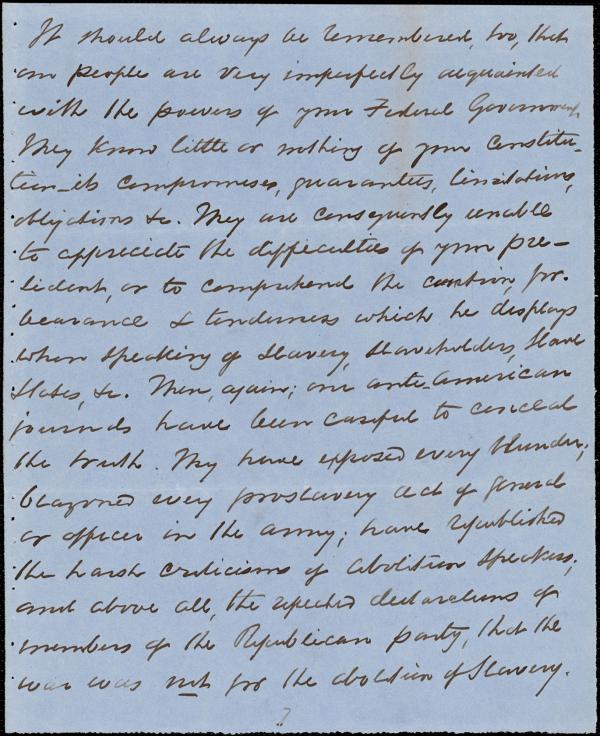 It should always be remembered, too, that
our people are very imperfectly acquainted
with the powers of your Federal Government.
They know little or nothing of your Constitu-
tion—its compromises, guarantees, limitations,
obligations &c. They are consequently unable
to appreciate the difficulties of your pre-
sident, or to comprehend the caution, for-
bearance & tenderness which he displays
when speaking of Slavery, Slaveholders, Slave
States, &c. Then, again; our anti-American
journals have been careful to conceal
the truth. They have exposed every blunder;
blazoned every proslavery act of general
or officer in the army; have republished
the harsh criticisms of abolition speakers;
and above all, the repeated declarations of
members of the Republican party, that the
war was not for the abolition of Slavery.